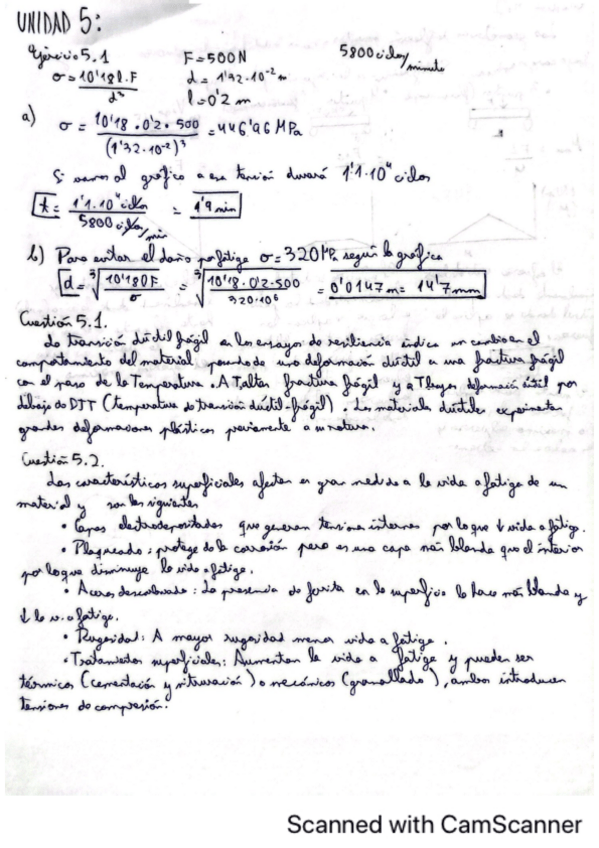 UNIDAD 5:
Ejercicio 5.1 F=500N 5800 ciclos/minuto
σ= 10'18 l·F / d³ d= 1'32·10⁻² m
l=0'2 m
a) σ= 10'18·0'2·500 / (1'32·10⁻²)³ = 446'96 MPa
Si vamos al gráfico a esa tensión durará 1'1·10⁴ ciclos
t= 1'1·10⁴ ciclos / 5800 ciclos/min = 1'9 min
b) Para evitar el daño por fatiga σ=320MPa según la gráfica
d= ³√(10'18 l F / σ) = ³√(10'18·0'2·500 / 320·10⁶) = 0'0147 m= 14'7mm
Cuestión 5.1.
La transición dúctil frágil en los ensayos de resiliencia indica un cambio en el
comportamiento del material, pasando de una deformación dúctil a una fractura frágil
con el paso de la Temperatura. A T altas fractura frágil y a T bajas deformación dúctil por
debajo de DTT (temperatura de transición dúctil-frágil). Los materiales dúctiles
grandes deformaciones plásticas previamente a su rotura.
Cuestión 5.2.
Las características superficiales afectan en gran medida a la vida a fatiga de un
material y son las siguientes
• Capas electrodepositadas que generan tensiones internas por lo que ↓ vida a fatiga.
• Plaqueado: protege de la corrosión pero es una capa más blanda que el interior
por lo que disminuye la vida a fatiga.
• Aceros descarburado: La presencia de ferrita en la superficie lo hace más blando y
↓ la v. a fatiga.
• Rugosidad: A mayor rugosidad menor vida a fatiga.
• Tratamientos superficiales: Aumentan la vida a fatiga y pueden ser
térmicos (cementación y nitruración) o mecánicos (granallado), ambos introducen
tensiones de compresión.
Scanned with CamScanner